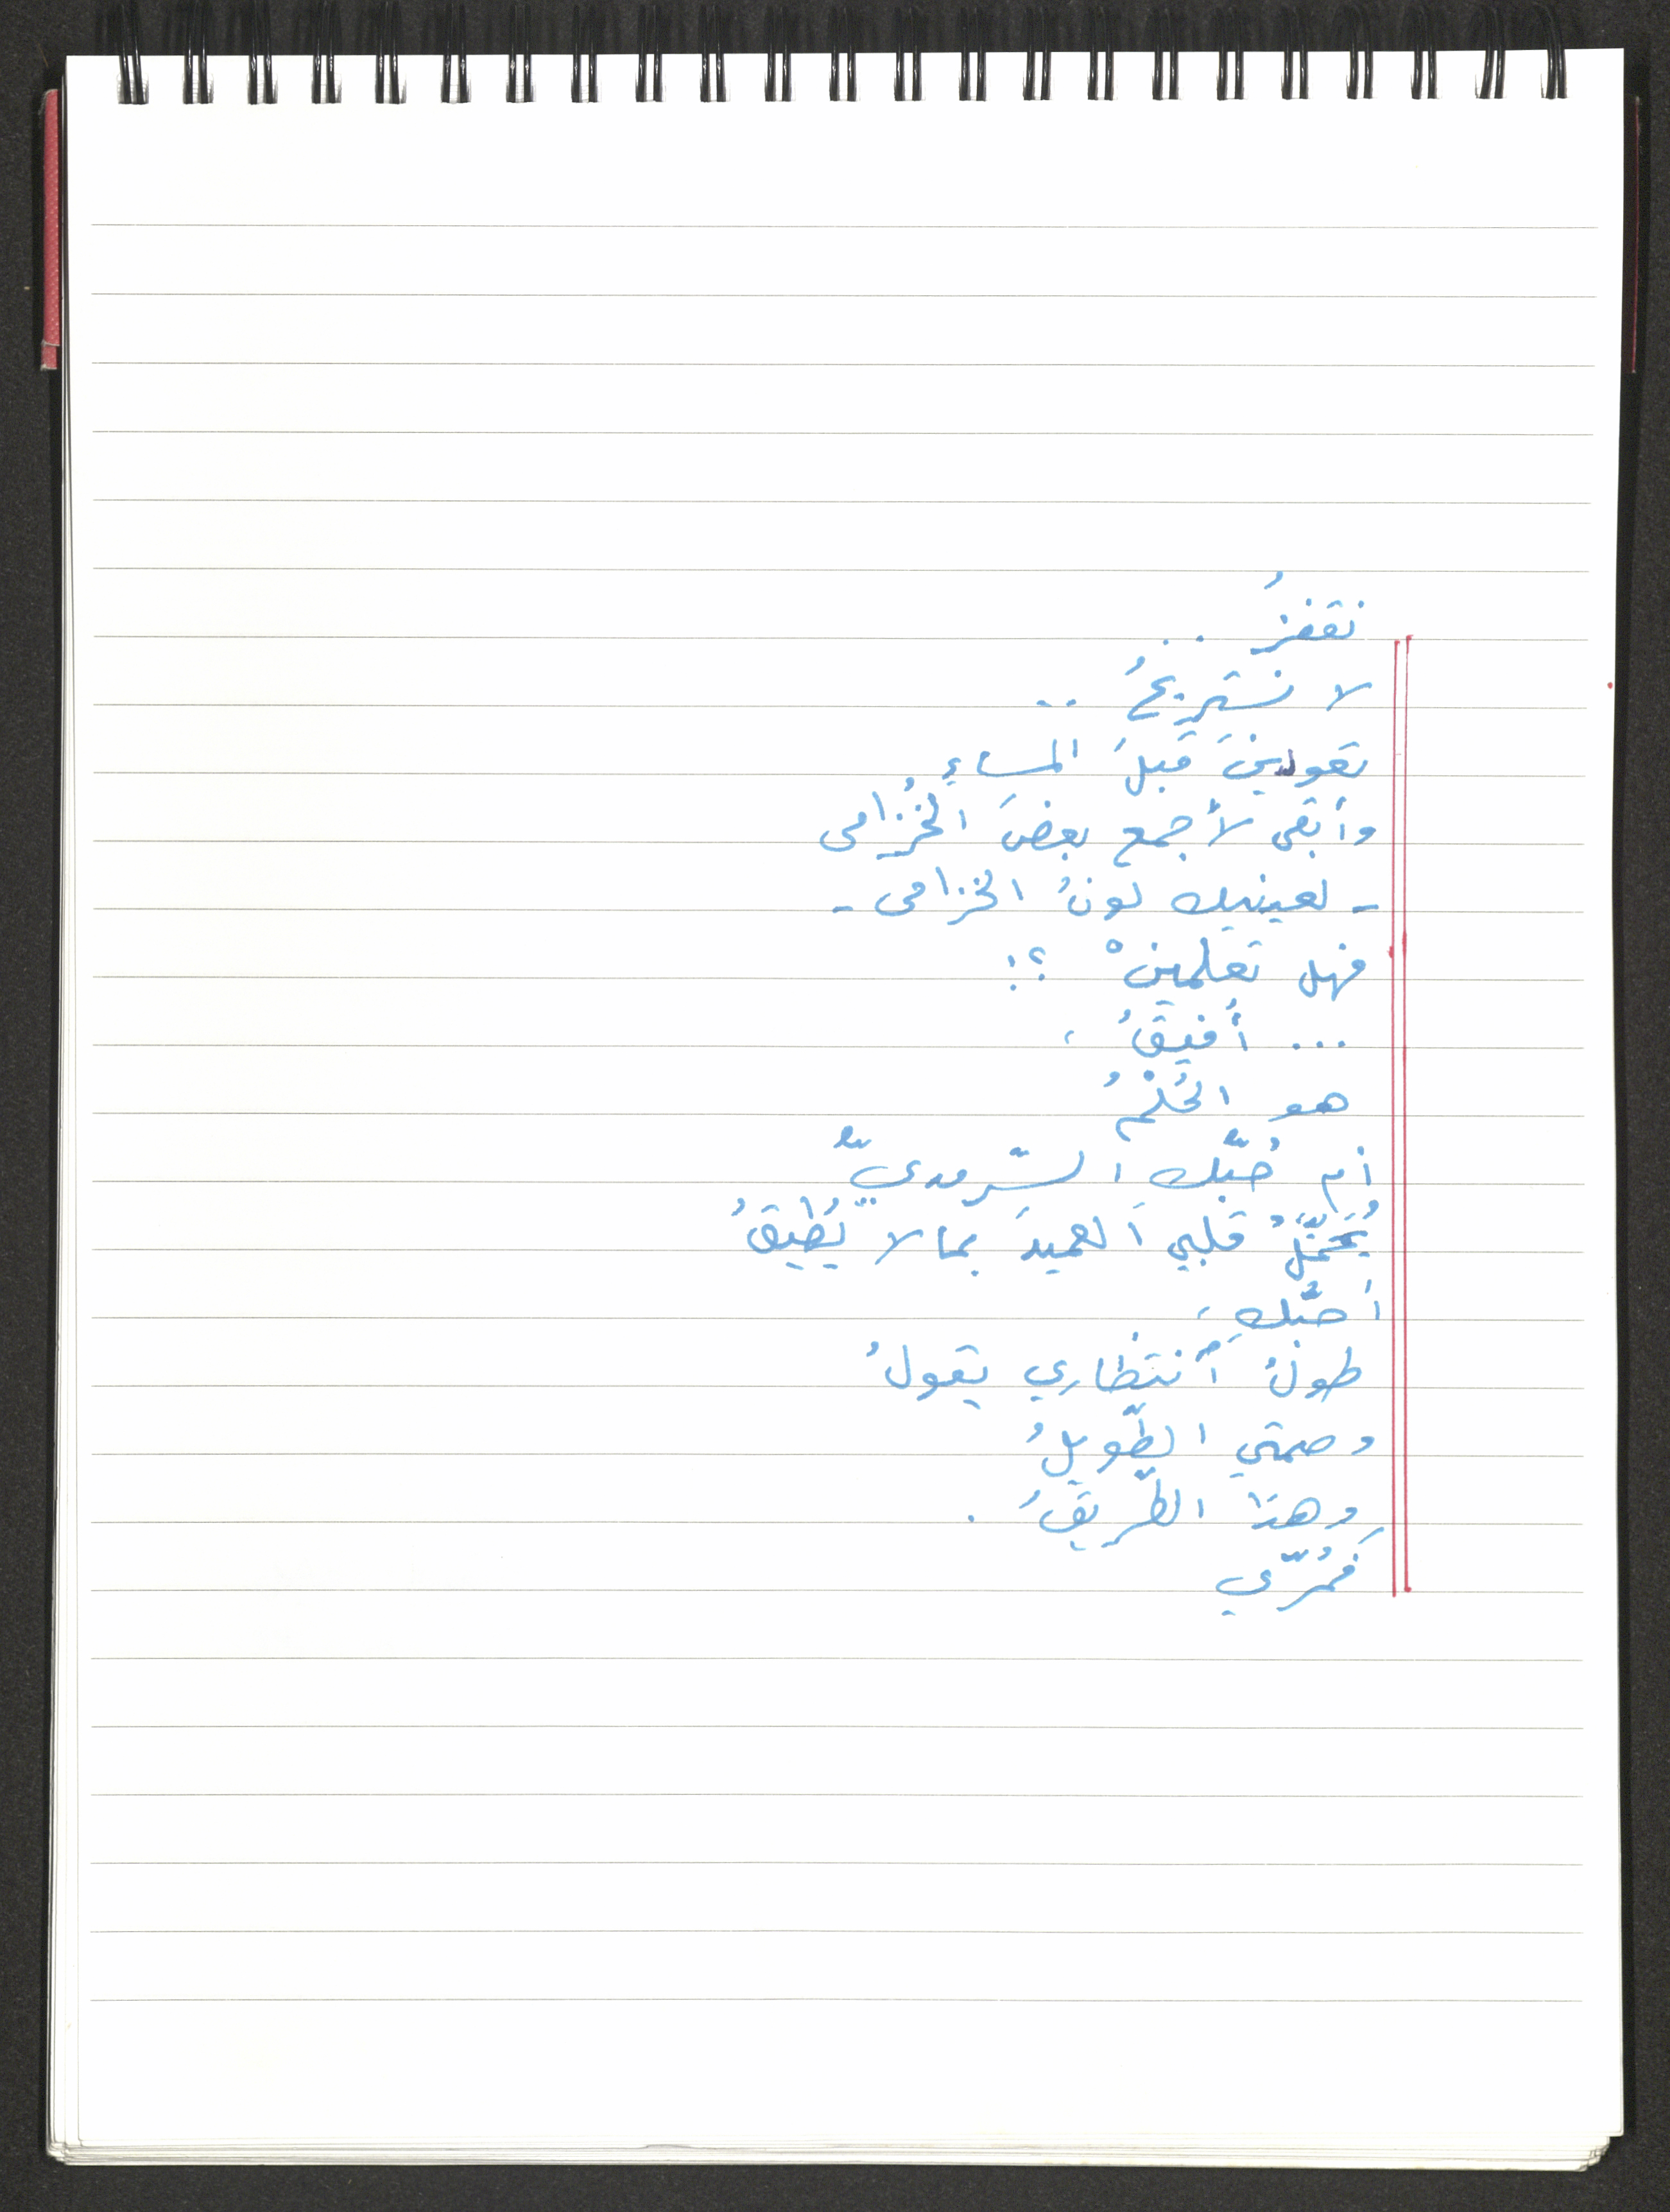 نقفزُ ..
لا نستريحُ ..
تعودينَ قبلَ المساءِ
وأبقى لأجمع بعضَ الخُزامى
- لعينيك لونُ الخزامى -
فهل تعلمينْ ؟!
... أُفيقُ ،
هو الحُلْمُ
أم حُبّك السّرمديّ
يُحَمّلُ قلبي العميدَ بما لا يُطيقُ
أحبّكِ ،
طولُ انتظاري يقولُ
وصمتي الطّويلُ
وهذا الطّريقُ .
فَمُرّي